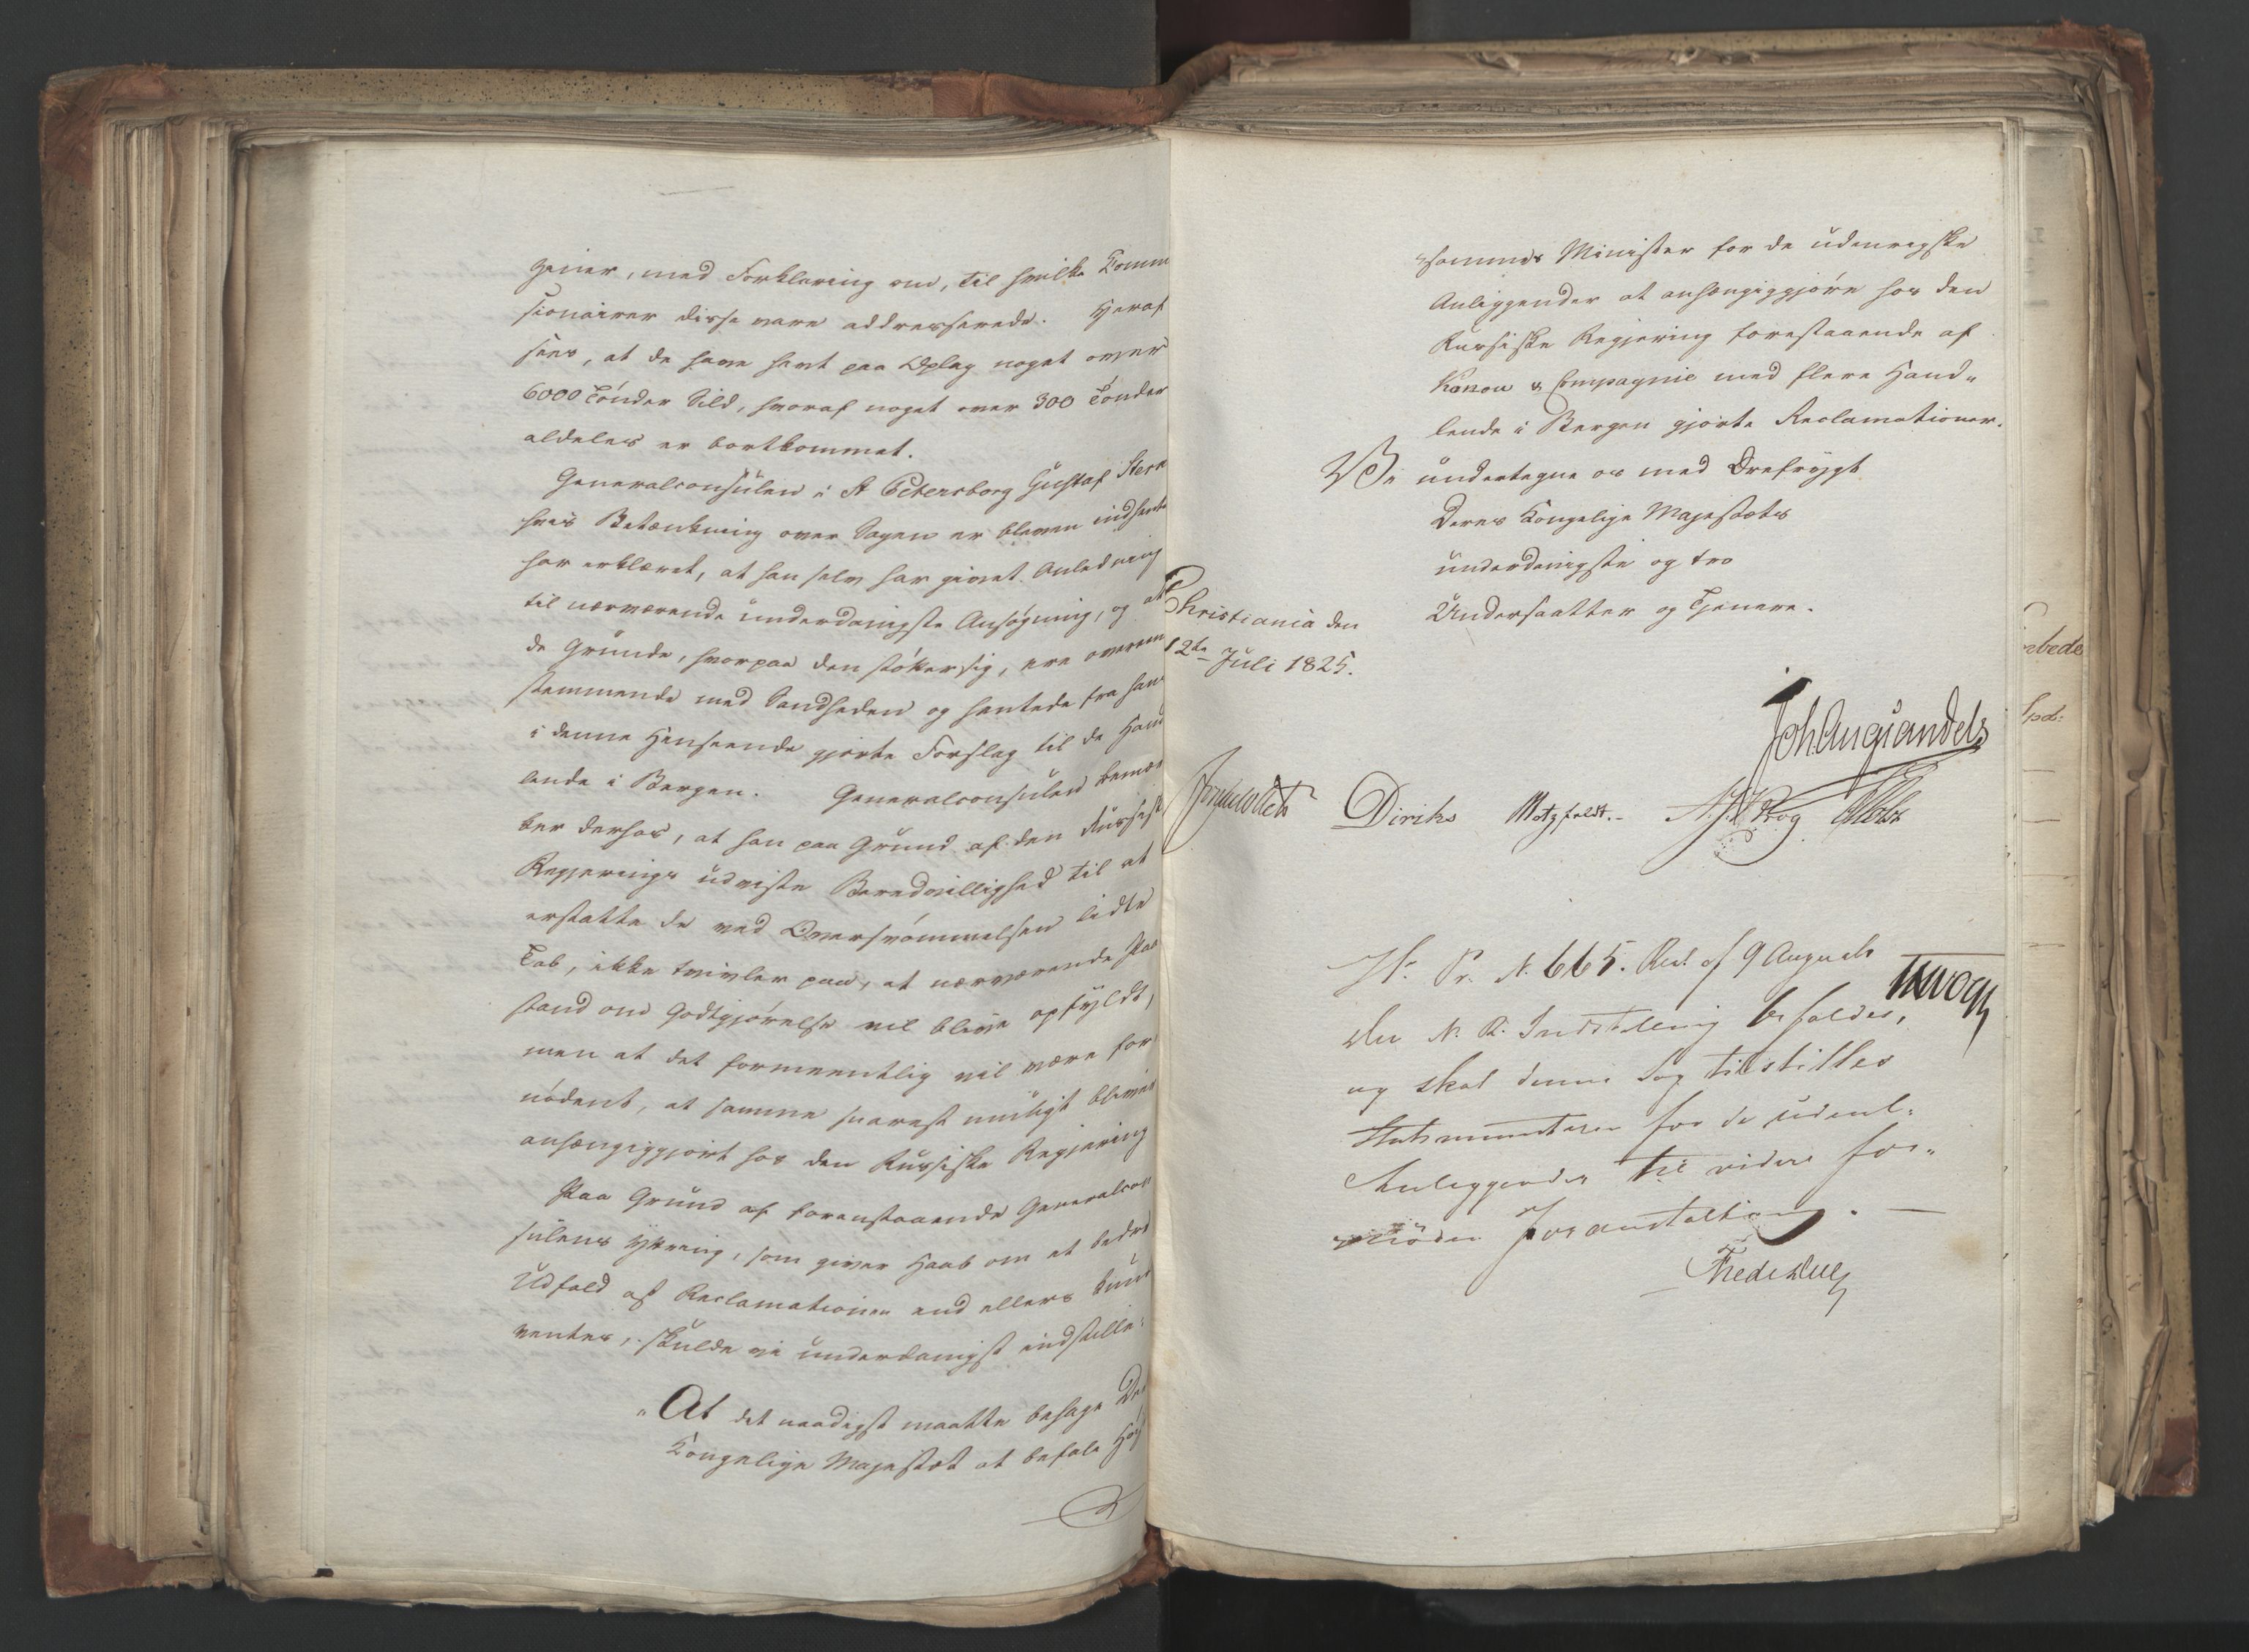 gener, med Forklaring om, til hvilke Komm
sionairer disse vare addresserede. Heraf
sees, at de have havt paa Oplag noget over
6000 Tönder Sild, hvoraf noget over 300 Tönder
aldeles er bortkommet.
Generalconsulen i St Petersborg Gustaf Stern
hvis Betænkning over Sagen er bleven indhentet
har erklæret, at han selv har givet Anledning
til nærværende underdanigste Ansøgning, og at
de Grunde, hvorpaa den stöttersig, ere overeen
stemmende med Sandheden og hentede fra hans
i denne Henseende gjorte Forslag til de Hand
lende i Bergen. Generalconsulen bemær
ker derhos, at han paa Grund af den Russiske
Regjerings udviste Beredvillighed til at
erstatte de ved Oversvömmelsen lidte
Tab, ikke tvivler paa, at nærværende Paa
stand om Godtgjörelse vil blive opfyldt,
men at det formeentlig vil være for
nödent, at samme snarest muligt bliver
anhængiggjort hos den Russiske Regjering
Paa Grund af foranstaaende Generalcon
sulens Yttring, som giver Haab om et bedre
Udfald af Reclamationen end ellers kunde
ventes, skulde vi underdanigst indstille:
"At det naadigst maatte behage Des
Kongelige Majestæt at befale Høist
sammes Minister for de udenrigske
Anliggender at anhængiggjöre hos den
Russiske Regjering forestaaende af
Konow & Compagnie med flere Hand-
lende i Bergen gjorte Reclamationer.
Vi undertegne os med Ærefrygt
Deres Kongelige Majestæts
underdanigste og tro
Undersaatter og Tjenere.
Christiania den
12te Juli 1825.
Joh Aug Sandels
Diriks Motzfeldt. Krog Holst
N. Pr. N. 665. Res. af 9 August
Den N. R. Indstilling befoldes,
og skal denne Sag tilstilles
Statsministeren for de udenl:
Anliggender til videre for-
nöden Foranstaltning. —
Fredr Due